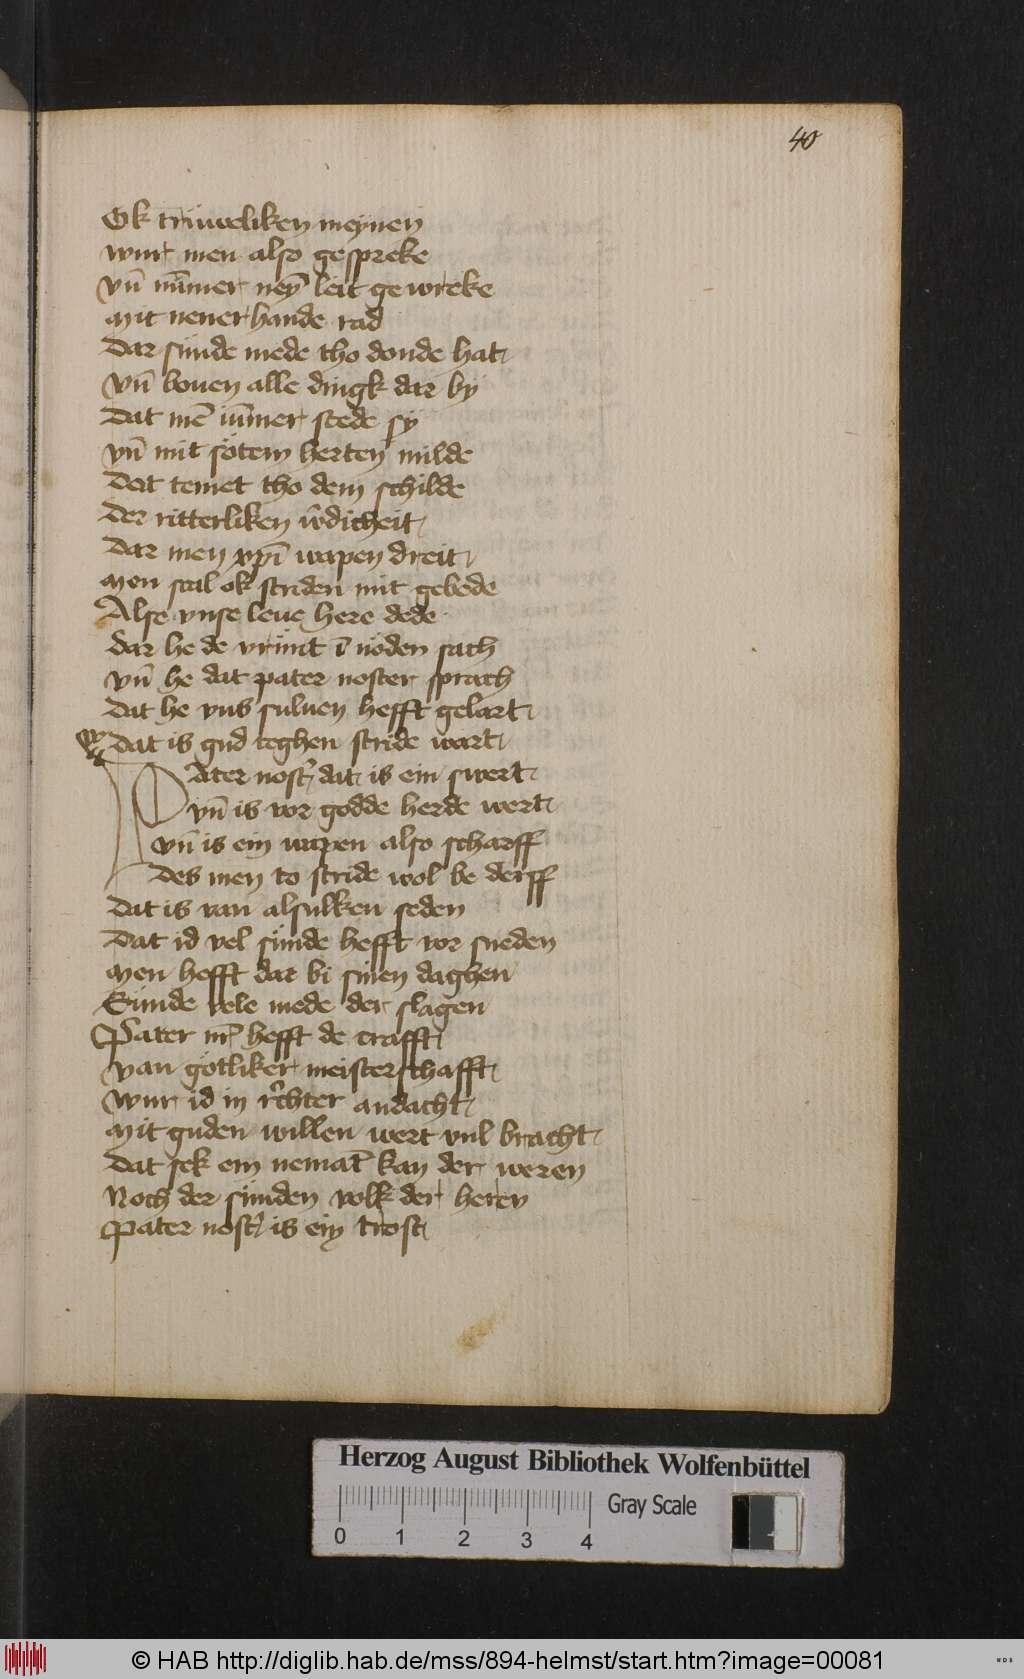 40
Ok trüweliken meynen
wur men also gespreke
vn̄ nūmer neȳ leit gewreke
mit nener hande rad
Dar sünde mede tho donde hat
Vn̄ bouen alle dingk dar by
Dat mē iūmer stede sy
vn̄ mit sötem herten milde
Dat temet tho dem schilde
Der ritterliken w̄dicheit
Dar men xp̄i wapen dreit
Men scal ok striden mit gebede
Alse vnse leue here dede
Dar he de vrünt ī nöden sach
vn̄ he dat pater noster sprach
Dat he vns suluen hefft gelart
Dat is gud teghen stride wart
Pater nost̓ dat is ein swert
vn̄ is vor godde herde wert
vn̄ is ein wapen also scharff
Des men to stride wol be derff
Dat is van alsulken seden
Dat id vel sünde hefft vor sneden
Men hefft dar bi sinen daghen
Sünde vele mede der slagen
Pater nr̄ hefft de crafft
van götliker meisterschafft
wur id in rechter andacht
mit guden willen wert vul bracht
Dat sek em neman̄t kan der weren
Noch der sünden volk der heren
Pater nost̓ is ein trost
Herzog August Bibliothek Wolfenbüttel
0 1 2 3 4
Gray Scale
© HAB http://diglib.hab.de/mss/894-helmst/start.htm?image=00081